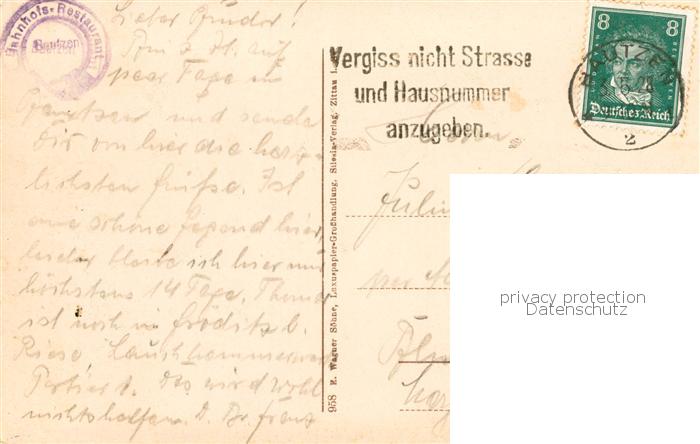 Bahnhofs-Restaurant
Bautzen
Lieber Bruder!
Bin z. Zt. auf
paar Tage in
Bautzen und sende
Dir von hier die herz-
lichsten Grüße. Ist
eine schöne Gegend hier,
leider bleibe ich hier nur
höchstens 14 Tage.
ist noch in Gröditz b.
Riesa Lauchhammerwerk
Portier. Das wird wohl
nichts helfen. D. Br. Franz
958 E. Wagner Söhne, Luxuspapier-Großhandlung, Silesia-Verlag, Zittau i.
Vergiss nicht Strasse
und Hausnummer
anzugeben.
8 8
Deutsches Reich
BAUTZEN
2
Herrn
privacy protection
Datenschutz